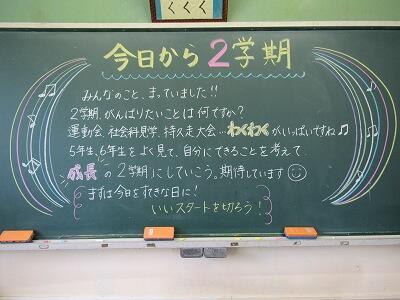 くくく
今日から2学期
みんなのこと、まっていました!!
2学期、がんばりたいことは何ですか?
運動会、社会科見学、持久走大会…わくわくがいっぱいですね♫
5年生、6年生をよく見て、自分にできることを考えて
成長の2学期にしていこう。期待しています☺
まずは今日をすてきな日に!
いいスタートを切ろう!